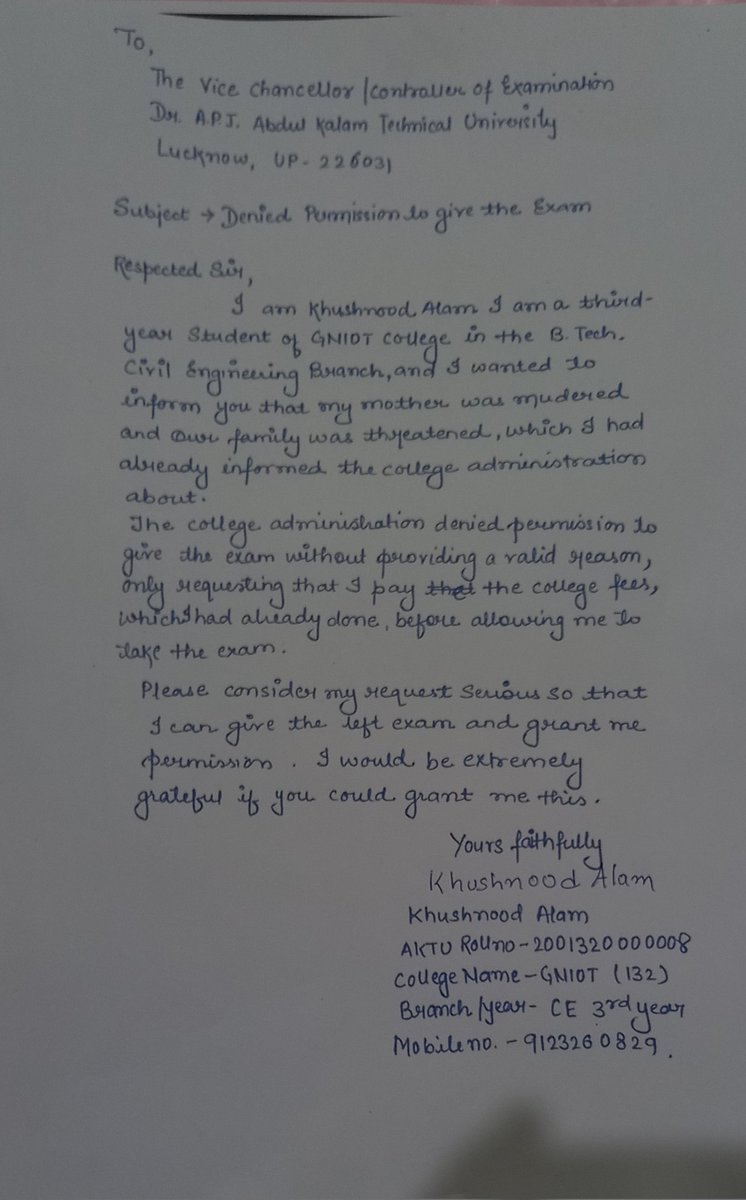 To,
The Vice Chancellor/Controller of Examination
Dr. A.P.J. Abdul Kalam Technical University
Lucknow, UP-226031
Subject → Denied Permission to give the Exam
Respected Sir,
I am Khushnood Alam I am a third-
year Student of GNIOT College in the B. Tech.
Civil Engineering Branch, and I wanted to
inform you that my mother was mudered
and our family was threatened, which I had
already informed the college administration
about.
The college administration denied permission to
give the exam without providing a valid reason,
only requesting that I pay that the college fees,
which I had already done, before allowing me to
take the exam.
Please consider my request Serious so that
I can give the left exam and grant me
permission. I would be extremely
grateful if you could grant me this.
Yours faithfully
Khushnood Alam
Khushnood Alam
AKTU Roll no - 2001320000008
College Name - GNIOT (132)
Branch/year - CE 3rd year
Mobile no. - 9123260829.